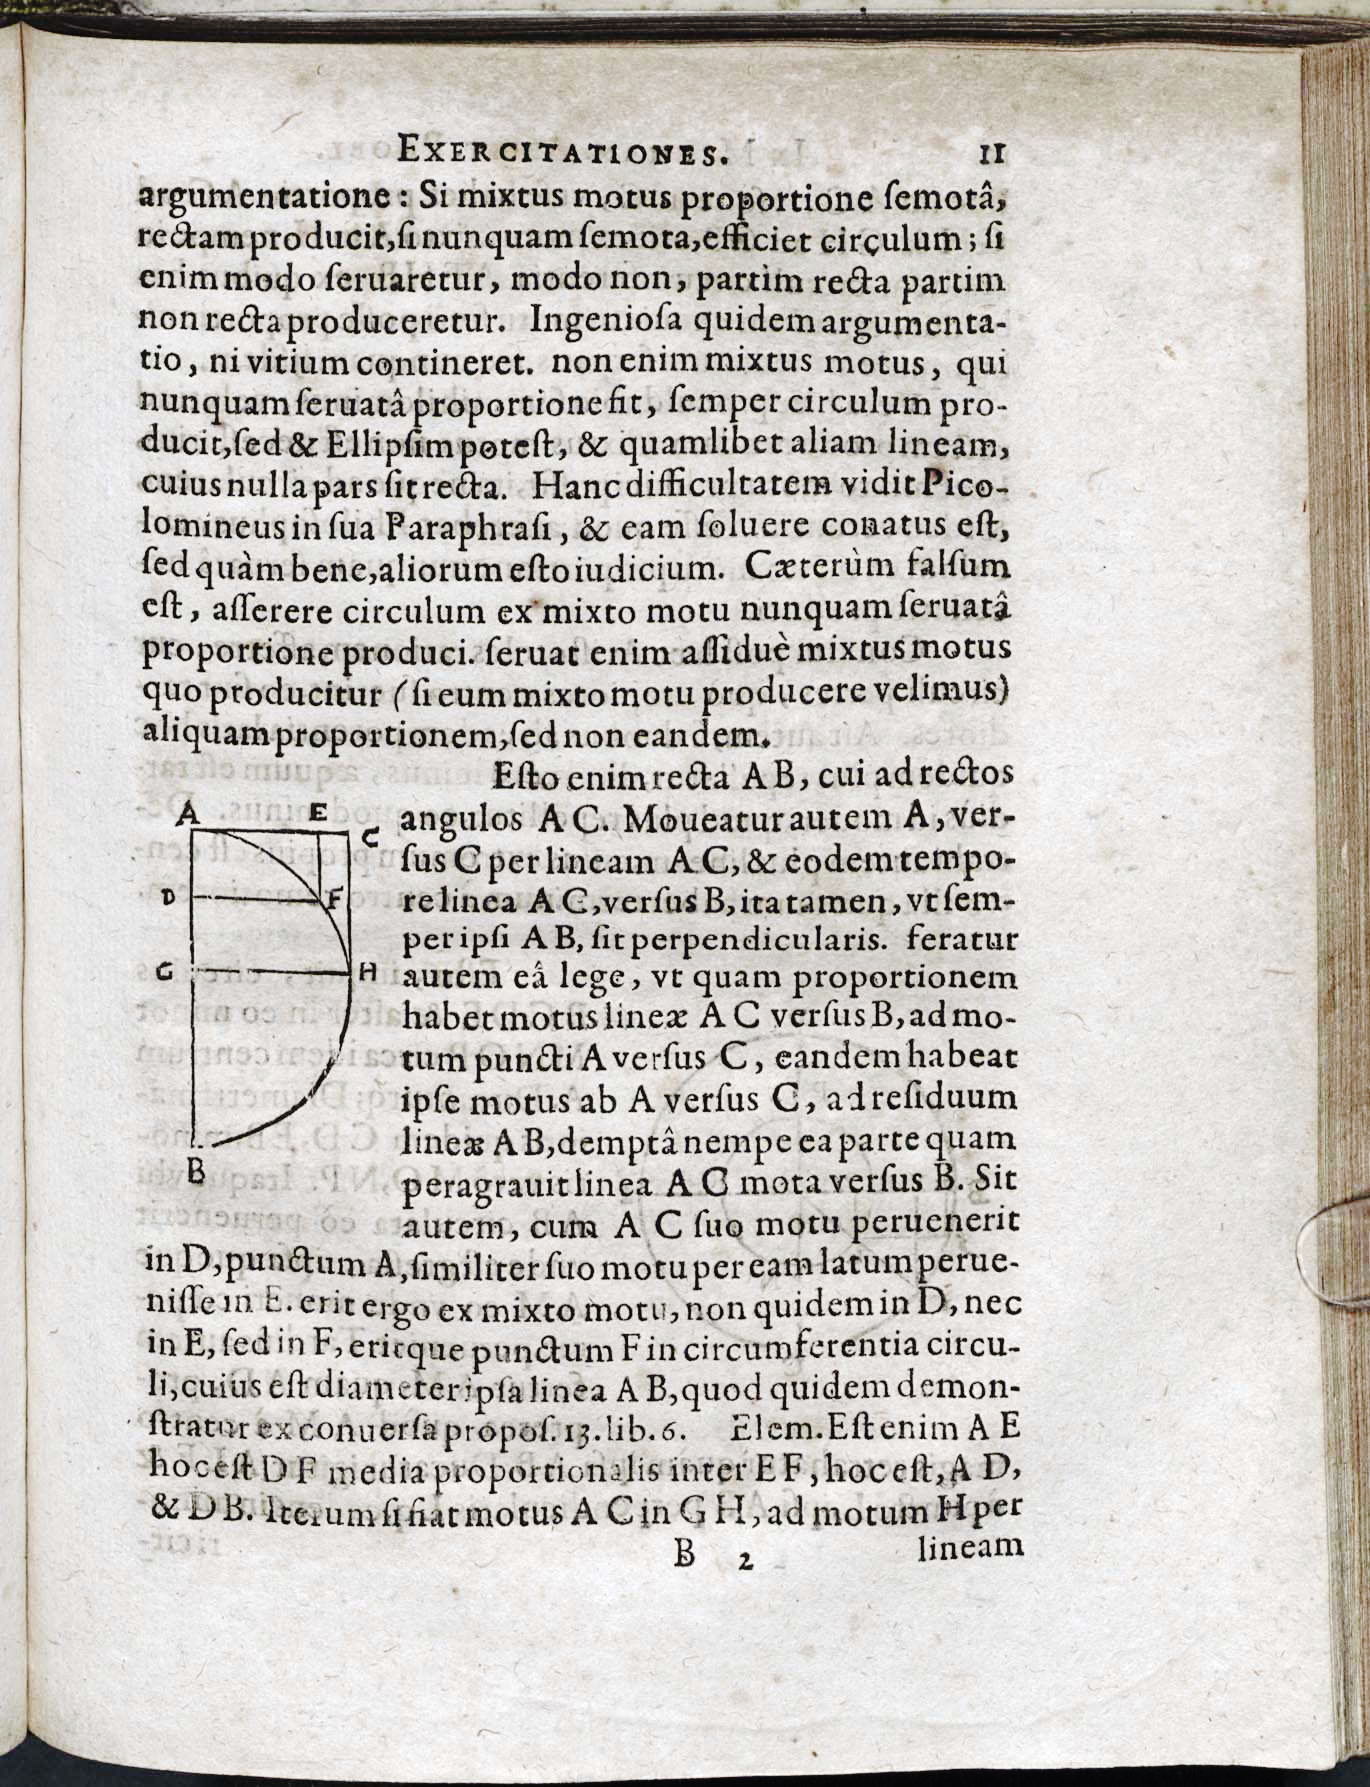 EXERCITATIONES. 11
argumentatione : Si mixtus motus proportione ſemotâ,
rectam producit, ſi nunquam ſemota, efficiet circulum ; ſi
enim modo ſeruaretur, modo non, partim recta partim
non recta produceretur. Ingenioſa quidem argumenta-
tio, ni vitium contineret. non enim mixtus motus, qui
nunquam ſeruatâ proportione fit, ſemper circulum pro-
ducit, ſed & Ellipſim poteſt, & quamlibet aliam lineam,
cuius nulla pars ſit recta. Hanc difficultatem vidit Pico-
lomineus in ſua Paraphraſi, & eam ſoluere conatus eſt,
ſed quàm bene, aliorum eſto iudicium. Cæterùm falſum
eſt, aſſerere circulum ex mixto motu nunquam ſeruatâ
proportione produci. ſeruat enim aſſiduè mixtus motus
quo producitur (ſi eum mixto motu producere velimus)
aliquam proportionem, ſed non eandem.
Eſto enim recta A B, cui ad rectos
angulos A C. Moueatur autem A, ver-
ſus C per lineam A C, & eodem tempo-
re linea A C, verſus B, ita tamen, vt ſem-
per ipſi A B, ſit perpendicularis. feratur
autem eâ lege, vt quam proportionem
habet motus lineæ A C verſus B, ad mo-
tum puncti A verſus C, eandem habeat
ipſe motus ab A verſus C, ad reſiduum
lineæ A B, demptâ nempe ea parte quam
peragrauit linea A C mota verſus B. Sit
autem, cum A C ſuo motu peruenerit
A E C
D F
G H
B
in D, punctum A, ſimiliter ſuo motu per eam latum perue-
niſſe in E. erit ergo ex mixto motu, non quidem in D, nec
in E, ſed in F, eritque punctum F in circumferentia circu-
li, cuius eſt diameter ipſa linea A B, quod quidem demon-
ſtratur ex conuerſa propoſ. 13. lib. 6. Elem. Eſt enim A E
hoc eſt D F media proportionalis inter E F, hoc eſt, A D,
& D B. Iterum ſi fiat motus A C in G H, ad motum H per
B 2 lineam